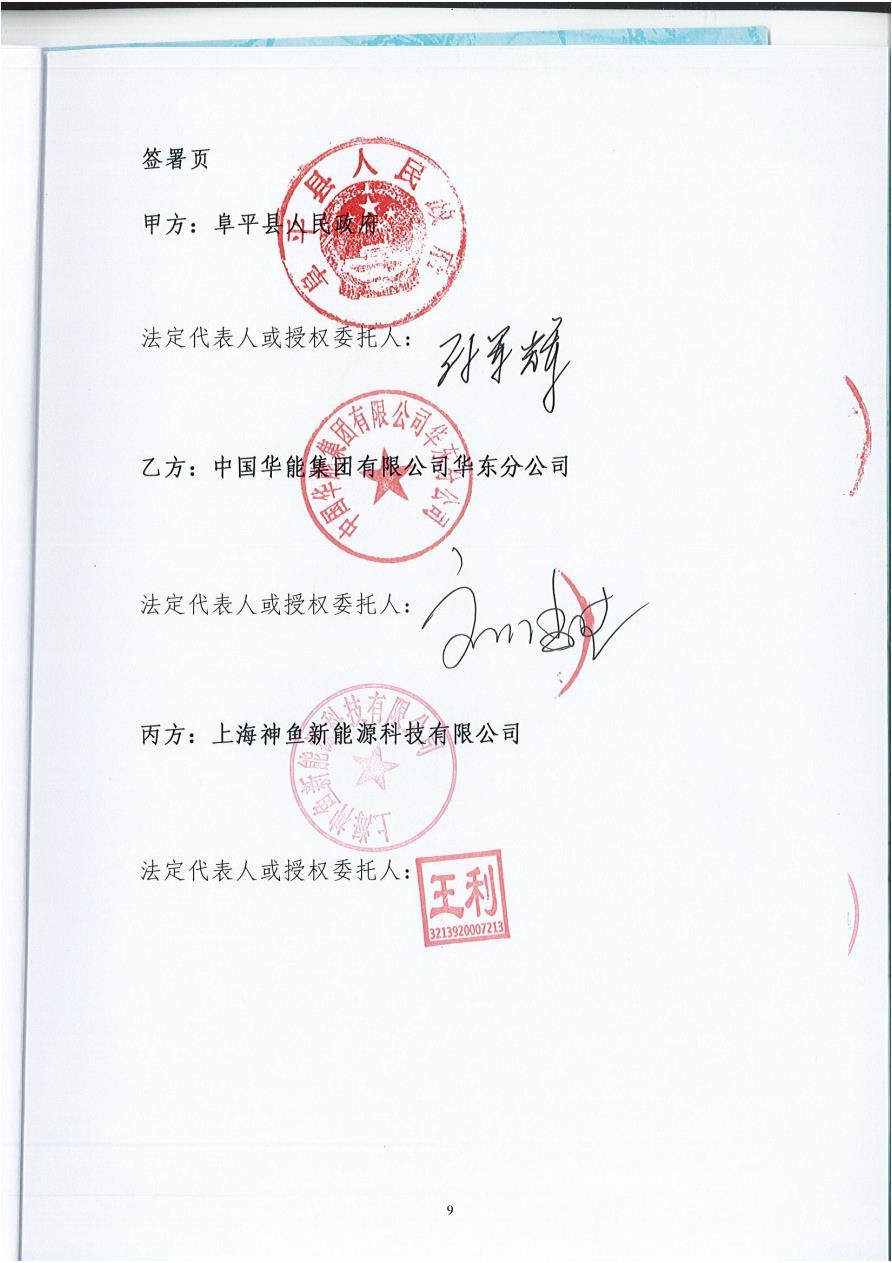 签署页
阜平县人民政府
甲方：阜平县人民政府
法定代表人或授权委托人：
中国华能集团有限公司华东分公司
乙方：中国华能集团有限公司华东分公司
法定代表人或授权委托人：
上海神鱼新能源科技有限公司
丙方：上海神鱼新能源科技有限公司
法定代表人或授权委托人：
王利
3213920007213
9